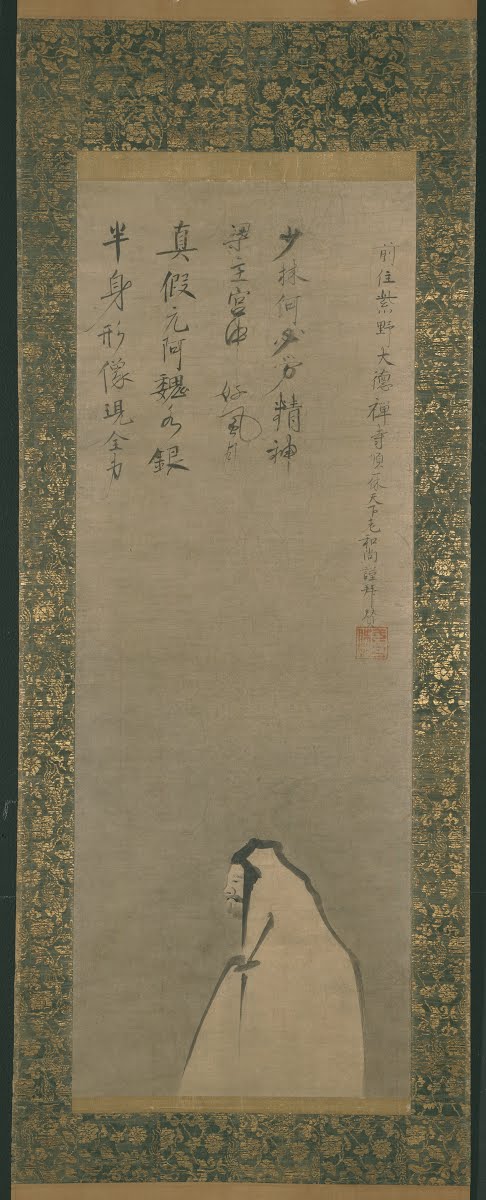 半身形像現全身
真假元阿魏水銀
梁王宮中好風
少林何必労精神
前住紫野大德禪寺順一休天下老和尚謹拜賛